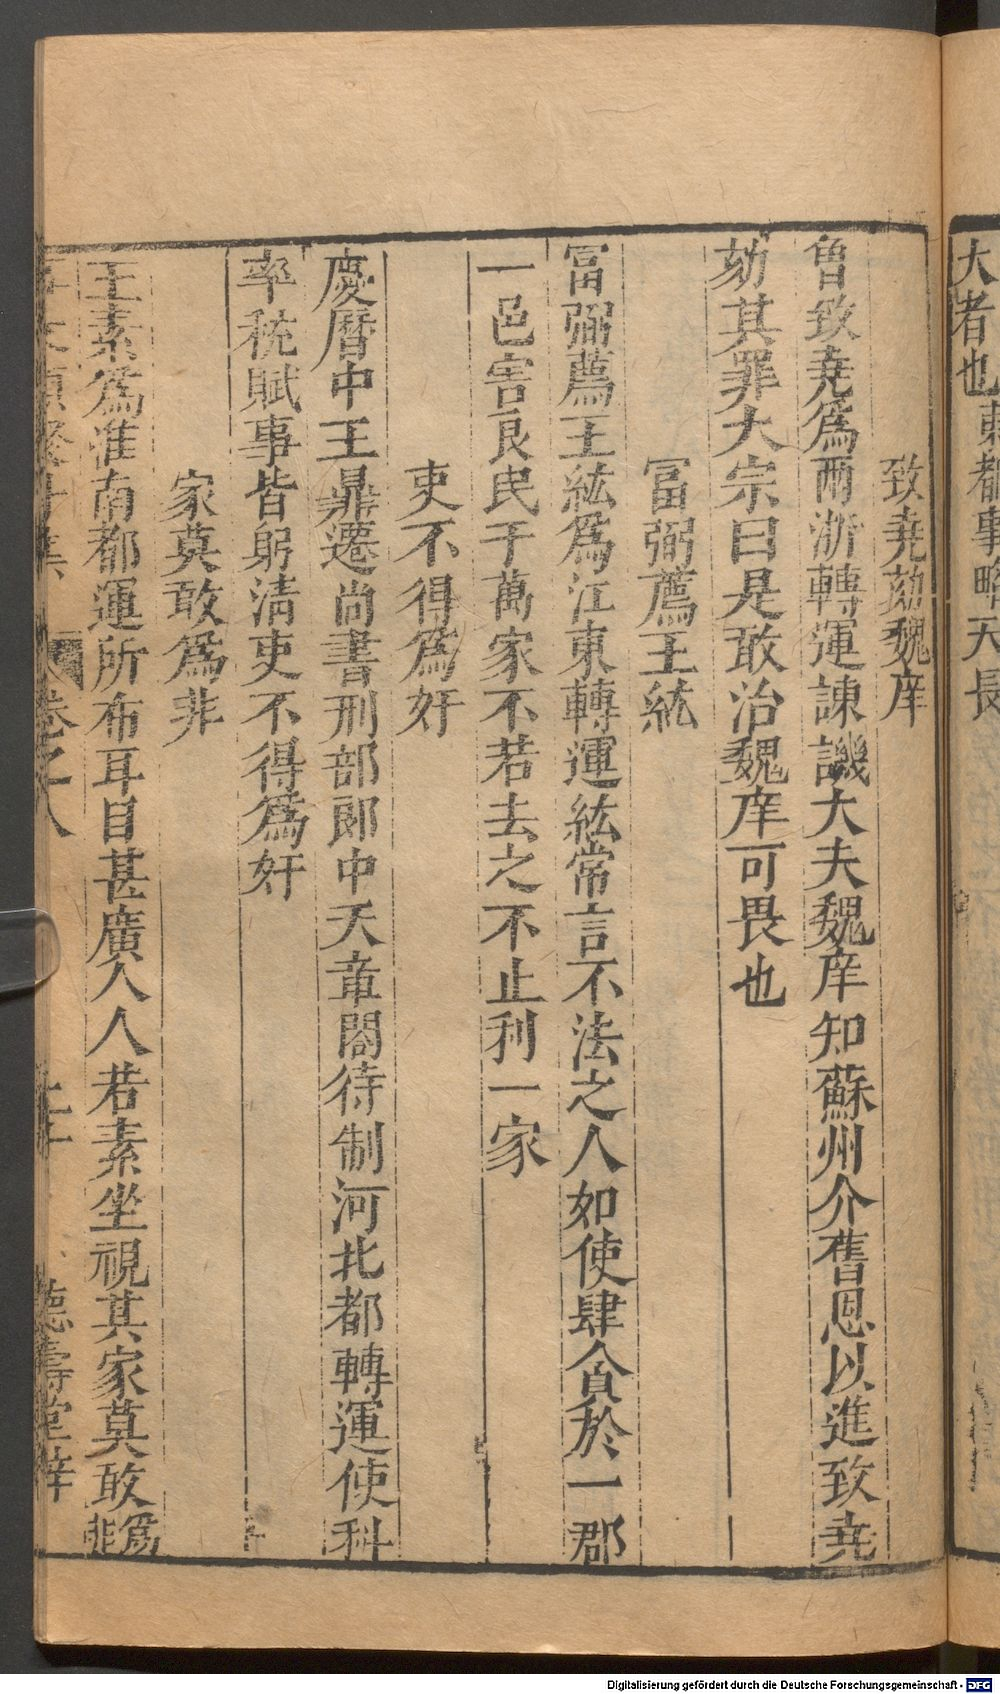 大者也東都事略天長
致尭劾魏庠
魯致尭爲兩浙轉運諫譏大夫魏庠知蘇州介舊恩以進致尭
劾其罪大宗曰是敢治魏庠可畏也
冨弼薦王絃
冨弼薦王絃爲江東轉運絃常言不法之人如使肆貪於一郡
一邑害良民于萬家不若去之不止利一家
吏不得爲奸
慶曆中王鼎遷尚書刑部郎中天章閣待制河北都轉運使科
率稅賦事皆躬清吏不得爲奸
家莫敢爲非
王素爲淮南都運所布耳目甚廣人人若素坐視其家莫敢爲非
卷之八
德壽堂梓
Digitalisierung gefördert durch die Deutsche Forschungsgemeinschaft - DFG